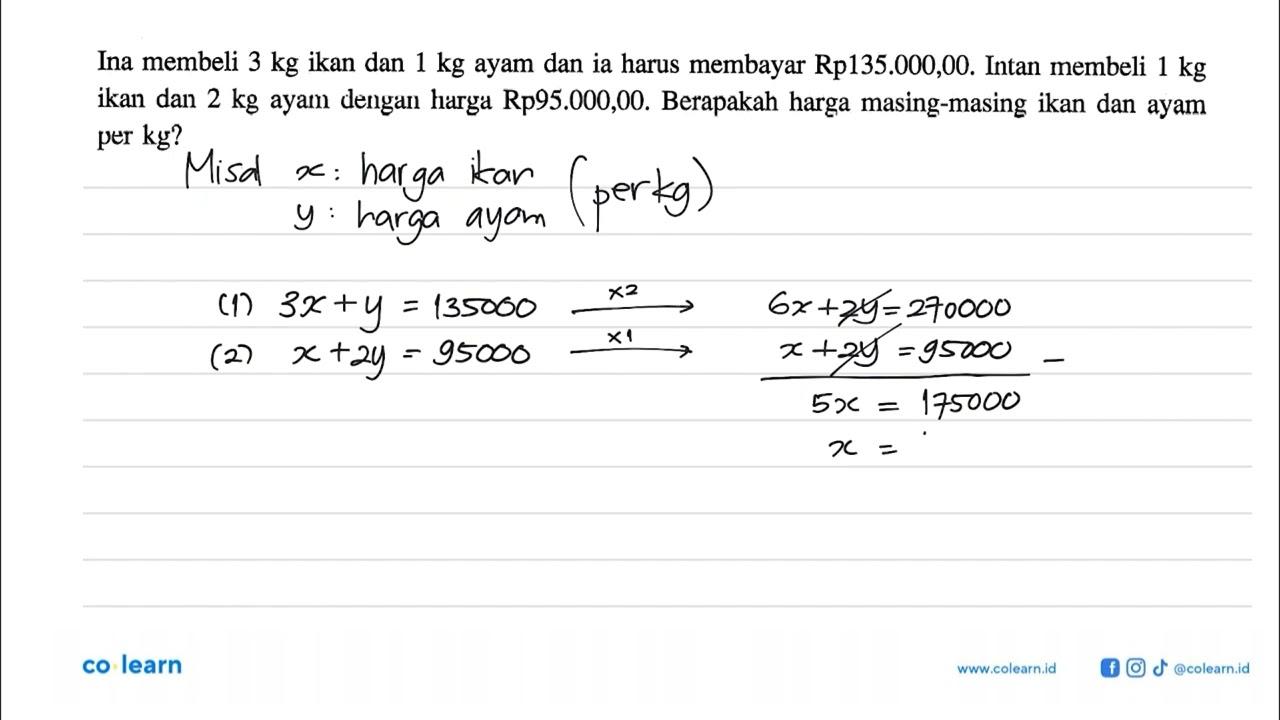 Ina membeli 3 kg ikan dan 1 kg ayam dan ia harus membayar Rp135.000,00. Intan membeli 1 kg
ikan dan 2 kg ayam dengan harga Rp95.000,00. Berapakah harga masing-masing ikan dan ayam
per kg?
Misal x : harga ikan (per kg)
y : harga ayam
(1) 3x + y = 135000 x2 → 6x + 2y = 270000
(2) x + 2y = 95000 x1 → x + 2y = 95000 –
5x = 175000
x =
co·learn
www.colearn.id @colearn.id